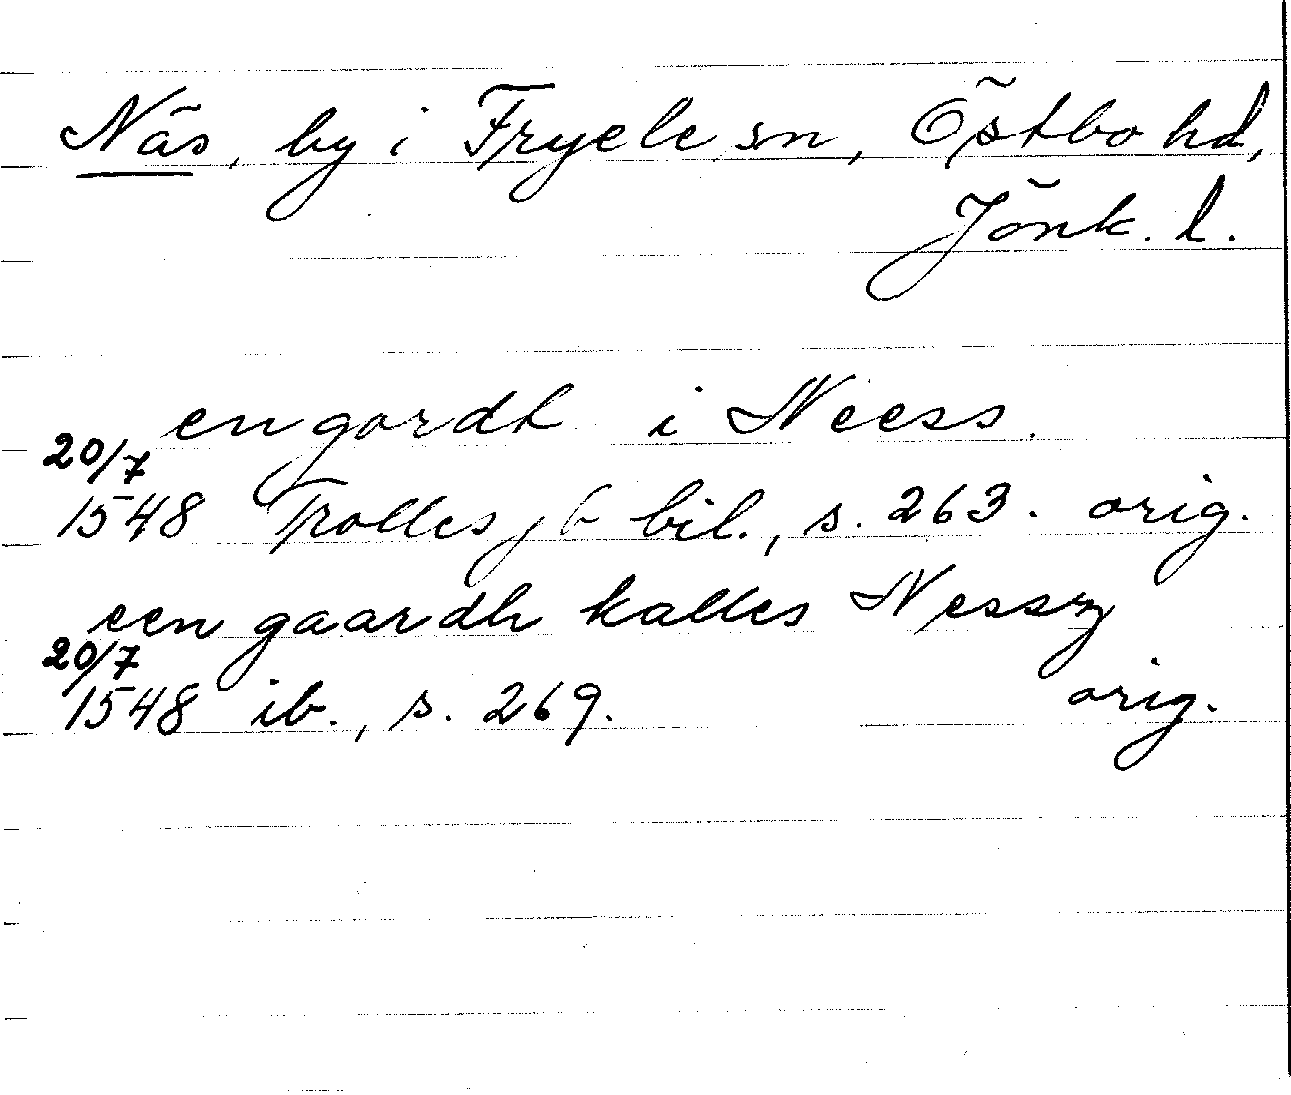 Näs, by i Fryele sn, Östbo hd,
Jönk. l.
en gordh i Neess.
20/7
1548 Trolles jb bil., s. 263. orig.
een gaardh kalles Nessz
20/7
1548 ib., s. 269. orig.